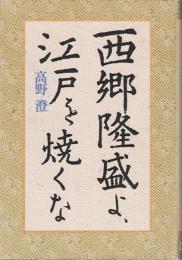 西郷隆盛よ、
江戸を焼くな
高野 澄